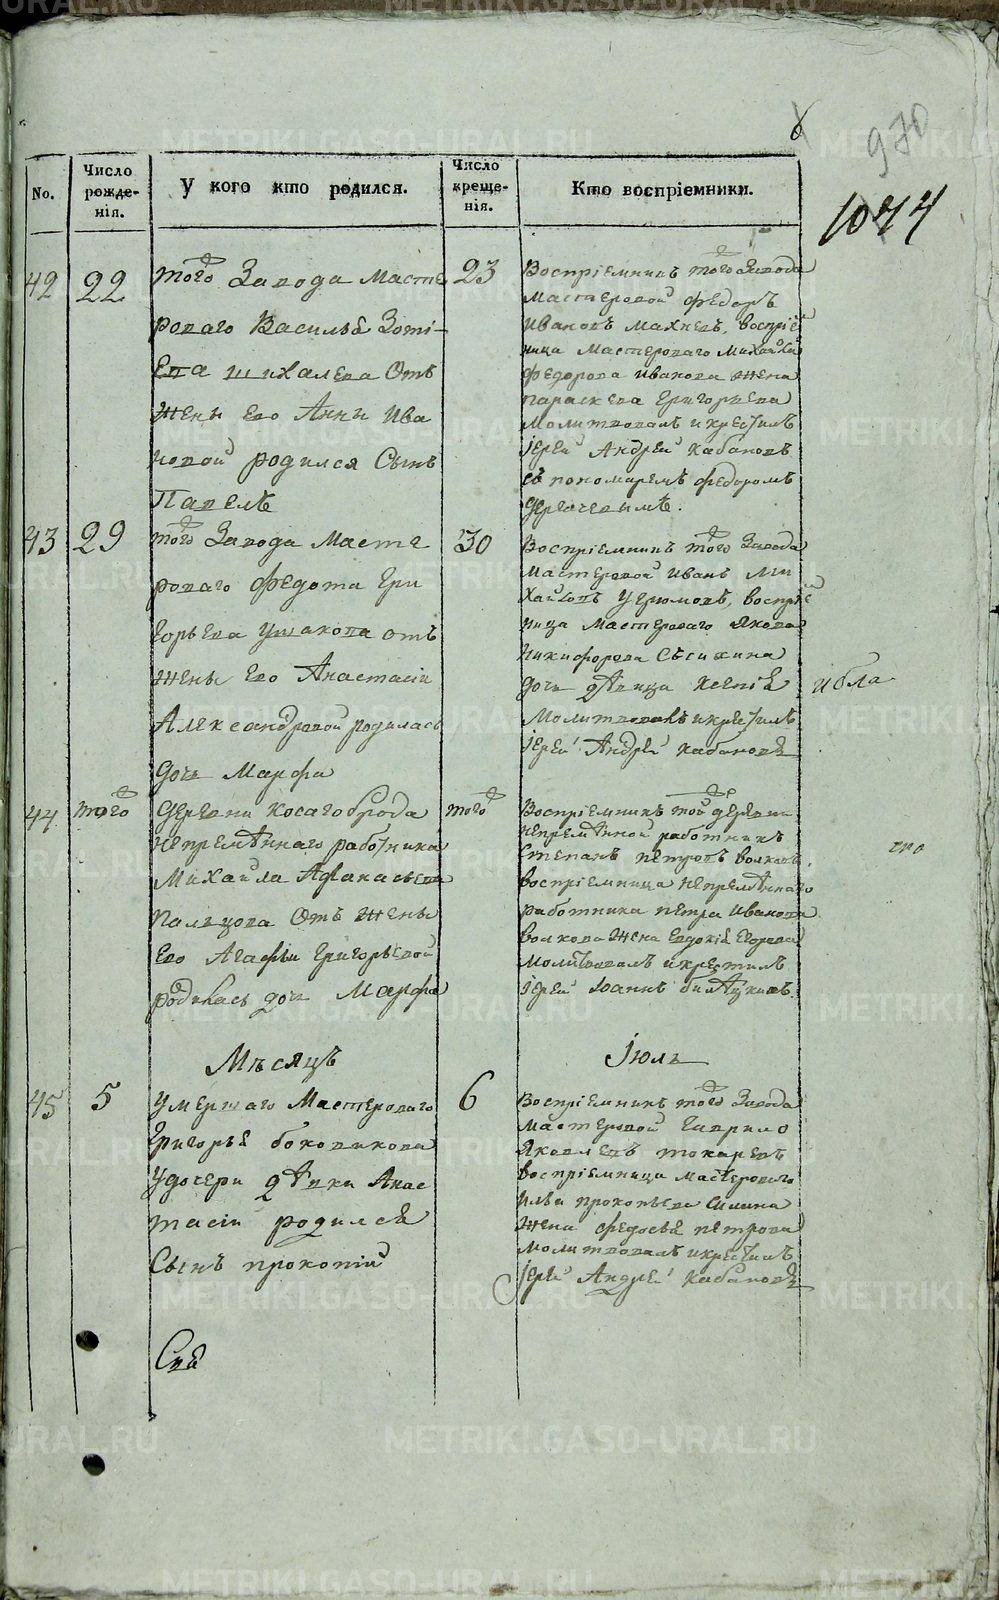 970
1044
No.
Число рожде-нія.
У кого кто родился.
Число креще-нія.
Кто воспріемники.
42
22
того Завода Масте
роваго Василья Зоті-
ева шихалева Отъ
жены Его Анны Ива
новой родился Сынъ
Павелъ
23
Воспріемникъ того Завода
Мастеровой Федоръ
Ивановъ Махневъ, воспріе
ница Мастероваго Михайла
Федорова Иванова жена
Параскева Григорьева
Молитвовалъ и крестилъ
Іерей Андрей Кабаковъ
съ пономаремъ Федоромъ
43
29
того Завода Масте
роваго Федота Гри
горьева Ушакова отъ
жены Его Анастасіи
Александровой родилась
дочь Марфа
30
Воспріемникъ того Завода
Мастеровой Иванъ Ми
хайловъ Угрюмовъ, воспріе
ница Мастероваго Якова
Никифорова
дочь дѣвица Ксенія
Молитвовалъ и крестилъ
Іерей Андрей Кабаковъ
44
того
деревни Косагоброда
непремѣннаго работника
Михайла Афанасьева
Пальцова Отъ жены
Его Агафьи Григорьевой
родилась дочь Марфа
того
Воспріемникъ той деревни
непремѣнной работникъ
Степанъ Петровъ Волковъ,
воспріемница непремѣннаго
работника Петра Иванова
Волкова жена Евдокія Егорова
Молитвовалъ и крестилъ
Іерей Іоаннъ
Мѣсяцъ
Іюль
45
5
Умершаго Мастероваго
Григорья боковикова
у дочери дѣвки Анас
тасіи родился
Сынъ Прокопій
6
Воспріемникъ того Завода
Мастеровой Гаврило
Яковлевъ токаревъ
воспріемница мастероваго
Ильи Прокопьева Силина
жена Федосья Петрова
Молитвовалъ и крестилъ
Іерей Андрей Кабаковъ
METRIKI.GASO-URAL.RU